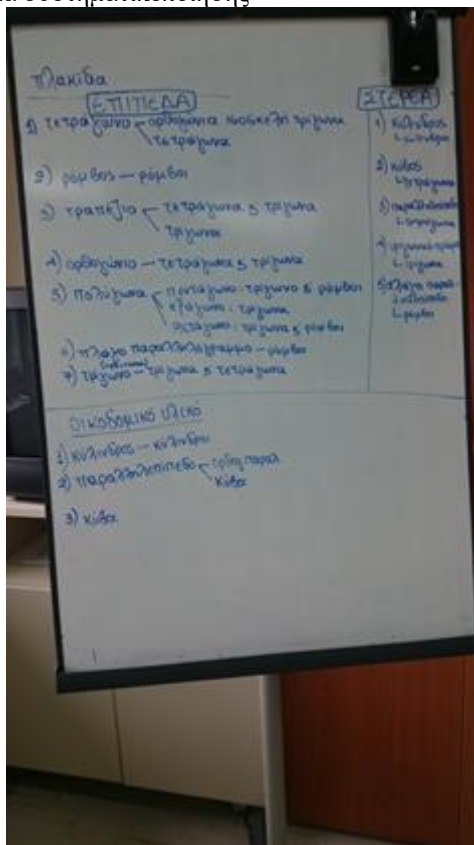 Πλακίδια
ΕΠΙΠΕΔΑ
1) τετράγωνο — ορθογώνια ισοσκελή τρίγωνα
τετράγωνα
2) ρόμβος — ρόμβοι
3) τραπέζιο — τετράγωνα & τρίγωνα
τρίγωνα
4) ορθογώνιο — τετράγωνα & τρίγωνα
5) Πολύγωνα — πεντάγωνο: τρίγωνο & ρόμβοι
εξάγωνο: τρίγωνα
οκτάγωνο: τρίγωνα & ρόμβοι
6) πλάγιο παραλληλόγραμμο — ρόμβοι
7) τρίγωνο — τρίγωνα & τετράγωνα
ΣΤΕΡΕΑ
1) κύλινδρος
κύλινδροι
2) κύβος
τετράγωνα
3)
4)
τρίγωνα
5) πλάγιο
ρόμβοι
ΟΙΚΟΔΟΜΙΚΟ ΥΛΙΚΟ
1) κύλινδρος — κύλινδροι
2) παραλληλεπίπεδο — τριγ. παραλ
κύβοι
3) κύβοι